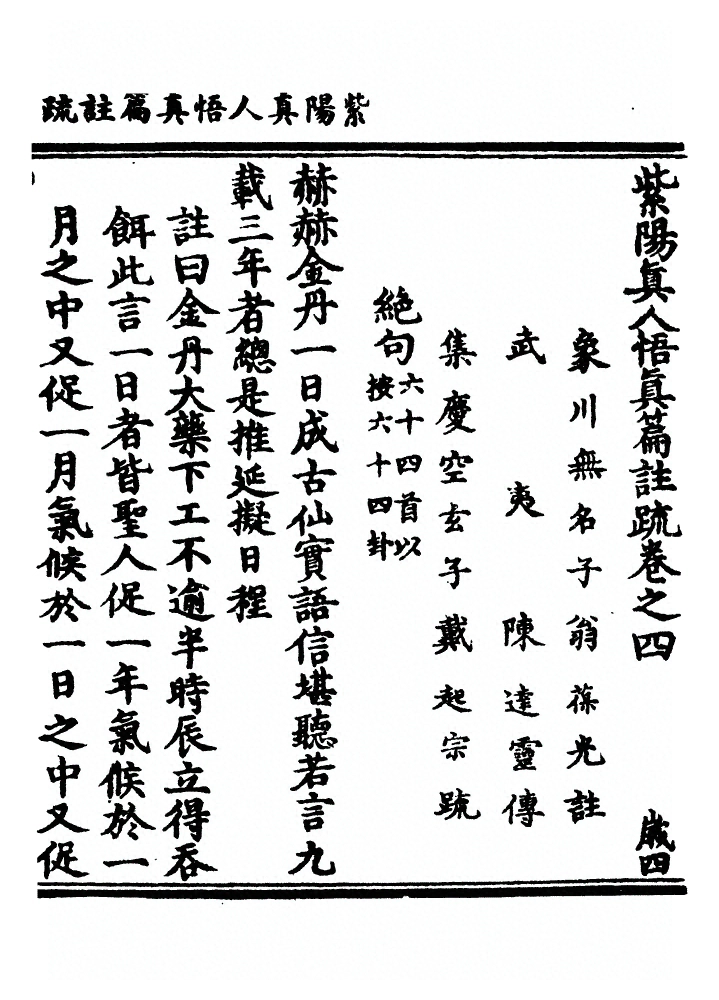 紫陽真人悟真篇註疏
紫陽眞人悟眞篇註疏卷之四
歲四
象川無名子翁葆光註
武夷陳達靈傳
集慶空玄子戴起宗疏
絕句六十四首以按六十四卦
赫赫金丹一日成古仙實語信堪聽若言九
載三年者總是推延擬日程
註曰金丹大藥下工不逾半時辰立得吞
餌此言一日者皆聖人促一年氣候於一
月之中又促一月氣候於一日之中又促